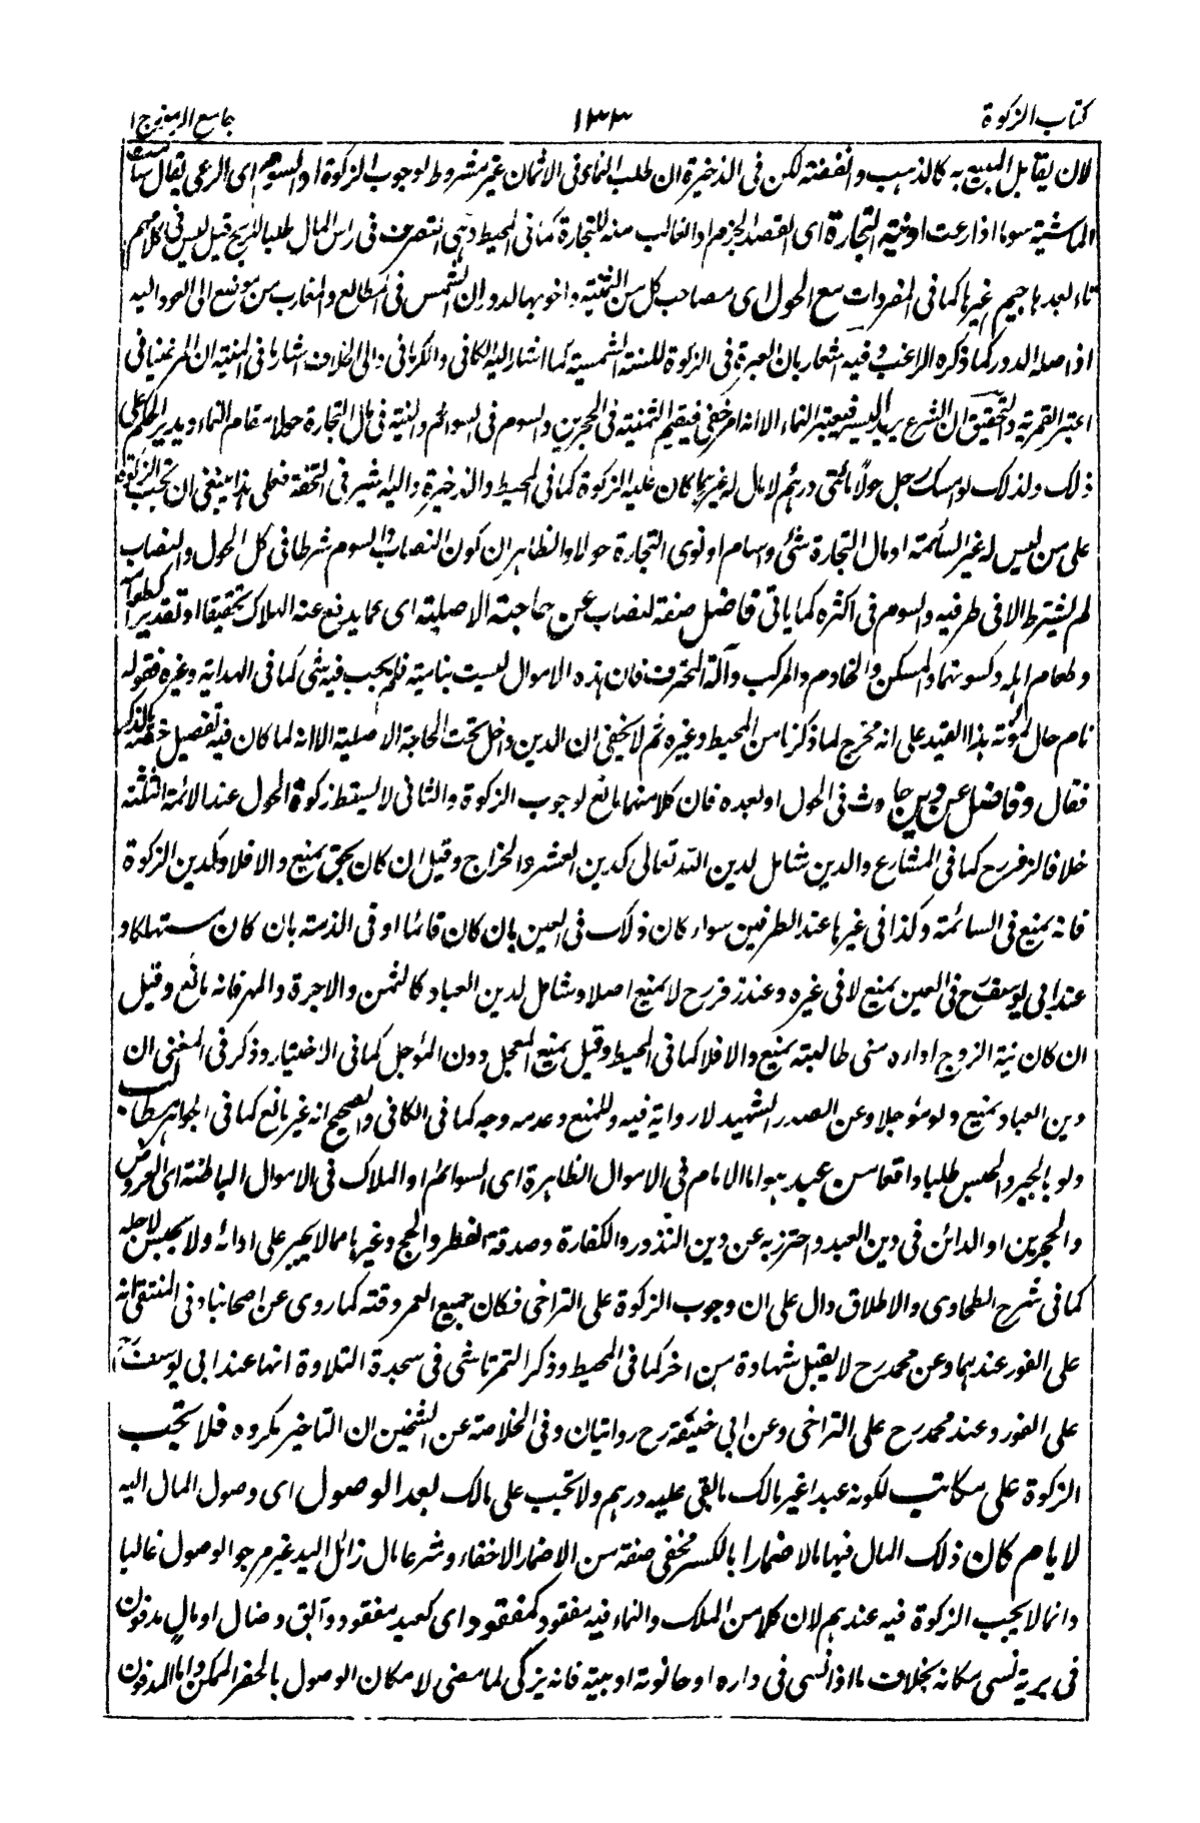 كتاب الزكوة ١٣٣ جامع الرموز ج ١
لان يقابل المبيع به كالذهب والفضة لكن فى الذخيرة ان طلب النماء فى الاثمان غير مشروط لوجوب الزكوة او السوم اى الرعى يقال سامت
الماشية سوما اذا رعت او نية التجارة اى القصد الجزم او الغالب منه للتجارة كما فى المحيط وهى التصرف فى راس المال طلبا للربح قيل ليس فى كلامهم
تاء بعدها جيم غيرها كما فى المفردات مع الحول اى مصاحب كل من الثمنية واخويها لدوران الشمس فى المطالع والمغارب من موضع الى العود اليه
اذ اصله الدور كما ذكره الراغب وفيه اشعار بان العبرة فى الزكوة للسنة الشمسية كما اشار اليه الكافى والكرمانى والى الخلاف اشار فى المنية ان المرغينانى
اعتبر القمرية والتحقيق ان الشرع يريد اليسر فيعتبر النماء الا انه امر خفى فيقيم الثمنية فى الحجرين والسوم فى السوائم والنية فى مال التجارة حولا مقام النماء ويدير الحكم على
ذلك ولذلك لو امسك رجل حولا مائتى درهم لا مال له غيرها كان عليه الزكوة كما فى المحيط والذخيرة واليه اشير فى التحفة فعلى هذا ينبغى ان تجب الزكوة
على من ليس له غير السائمة او مال التجارة شئ واسام او نوى التجارة حولا والظاهر ان كون النصاب والسوم شرطا فى كل الحول والنصاب
لم يشترط الا فى طرفيه والسوم فى اكثره كما ياتى فاضل صفة لنصاب عن حاجته الاصلية اى عما يدفع عنه الهلاك تحقيقا او تقديرا كطعامه
وطعام اهله وكسوتهما والمسكن والخادم والمركب وآلة المحترف فان هذه الاموال ليست بنامية فلم يجب فيه شئ كما فى الهداية وغيره فقوله
نام حال مؤنة هذا القيد على انه مخرج لما ذكرنا من المحيط وغيره ثم لا يخفى ان الدين داخل تحت الحاجة الاصلية الا انه لما كان فيه تفصيل خصه بالذكر
فقال وفاضل عن دين حادث فى الحول او بعده فان كلا منهما مانع لوجوب الزكوة والثانى لا يسقط زكوة الحول عند الائمة الثلثة
خلافا لزفر رح كما فى المشارع والدين شامل لدين الله تعالى كدين العشر والخراج وقيل ان كان بحق يمنع والا فلا وكدين الزكوة
فانه يمنع فى السائمة وكذا فى غيرها عند الطرفين سواء كان ذلك فى العين بان كان قائما او فى الذمة بان كان مستهلكا و
عند ابى يوسف رح فى العين يمنع لا فى غيره وعند زفر رح لا يمنع اصلا وشامل لدين العباد كالثمن والاجرة والمهر فانه مانع وقيل
ان كان نية الزوج اداءه متى طالبته يمنع والا فلا كما فى المحيط وقيل يمنع المعجل دون المؤجل كما فى الاختيار وذكر فى المغنى ان
دين العباد يمنع ولو مؤجلا وعن الصدر الشهيد لا رواية فيه وللمنع وعدمه وجه كما فى الكافى والصحيح انه غير مانع كما فى الجواهر مطالب
ولو بالجبر والحبس طلبا واقعا من عبد هو اما الامام فى الاموال الظاهرة اى السوائم او الملاك فى الاموال الباطنة اى العروض
والحجرين او الدائن فى دين العبد واحترز به عن دين النذور والكفارة وصدقة الفطر والحج وغيرها مما لا يجبر على ادائه ولا يحبس لاجله
كما فى شرح الطحاوى والاطلاق دال على ان وجوب الزكوة على التراخى فكان جميع العمر وقته كما روى عن اصحابنا وفى المنتقى انه
على الفور عندهما وعن محمد رح لا يقبل شهادة من اخر كما فى المحيط وذكر التمرتاشى فى سجدة التلاوة انها عند ابى يوسف رح
على الفور وعند محمد رح على التراخى وعن ابى حنيفة رح روايتان وفى الخلاصة عن الشيخين ان التاخير مكروه فلا تجب
الزكوة على مكاتب لكونه عبدا غير مالك ما بقى عليه درهم ولا تجب على مالك بعد الوصول اى وصول المال اليه
لايام كان ذلك المال فيها مالا ضمارا بالكسر مخفى صفة من الاضمار الاخفاء وشرعا مال زائل اليد غير مرجو الوصول غالبا
وانما لا يجب الزكوة فيه عندهم لان كلا من الملك والنماء فيه مفقود كمفقود اى كعبد مفقود وآبق وضال او مال مدفون
فى برية نسى مكانه بخلاف ما اذا نسى فى داره او حانوته او بيته فانه يزكى لما مضى لامكان الوصول بالحفر الممكن واما المدفون